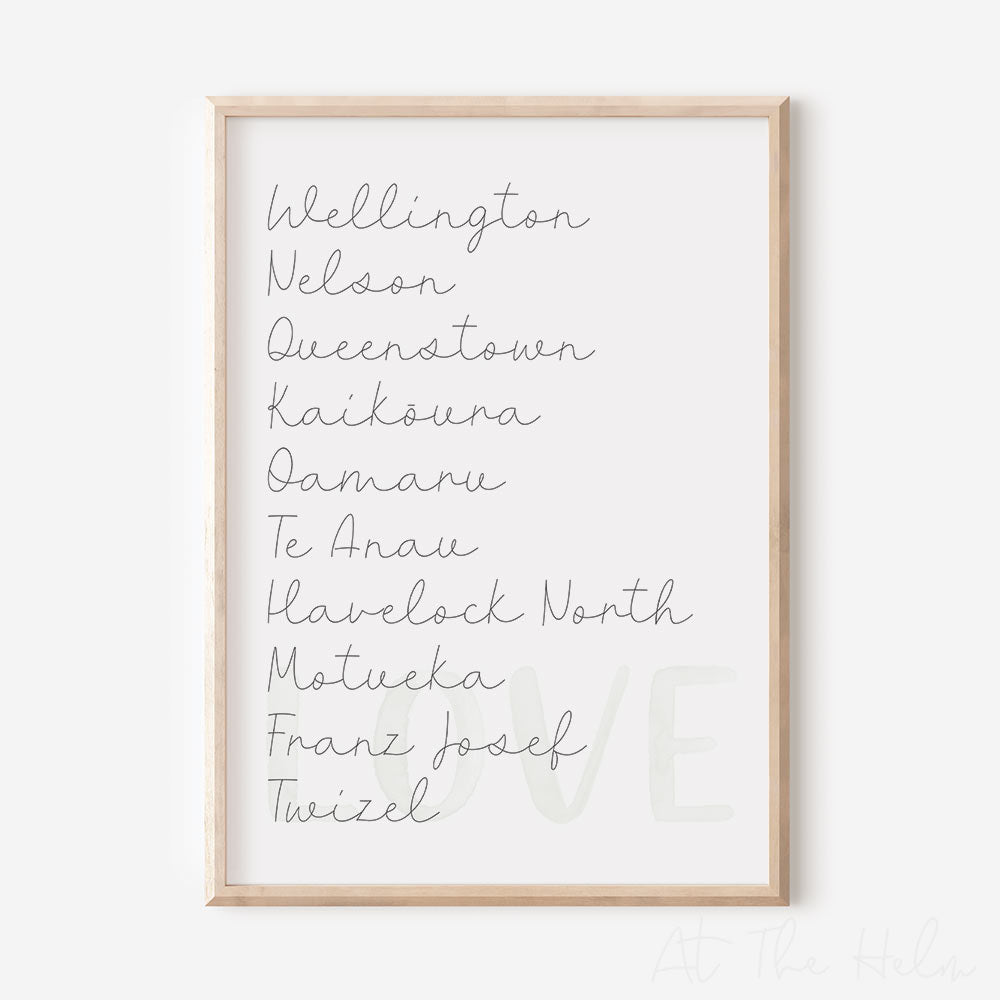 Wellington
Nelson
Queenstown
Kaikōura
Oamaru
Te Anau
Havelock North
Motueka
Franz Josef
Twizel
LOVE
At The Helm